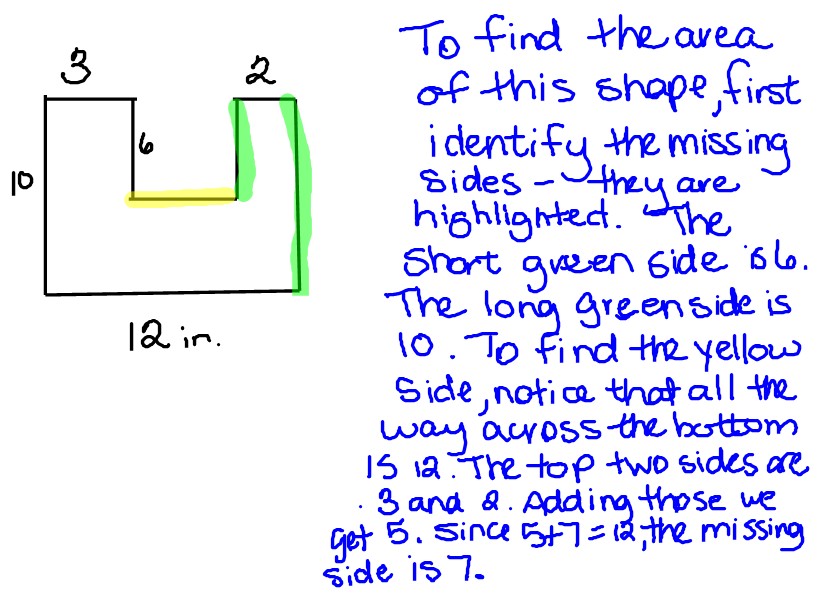 3
2
6
10
12 in.
To find the area
of this shape, first
identify the missing
sides - they are
highlighted. The
short green side is 6.
The long green side is
10. To find the yellow
side, notice that all the
way across the bottom
is 12. The top two sides are
3 and 2. Adding those we
get 5. Since 5+7=12, the missing
side is 7.